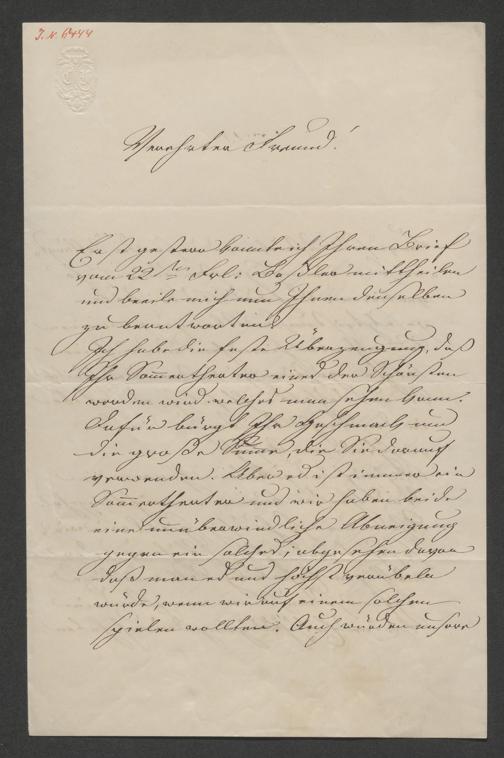 J. N. 6444
Verehrter Freund!
Erst gestern konnte ich Ihren Brief
vom 22ten Frl: Boßler mittheilen
und beeile mich nun Ihnen denselben
zu beantworten.
Ich habe die feste Überzeugung, daß
Ihr Somertheater eines der Schönsten
werden wird welches man sehen kann.
Dafür bürgt Ihr Geschmack und
die große Sume, die Sie darauf
verwenden. Aber es ist immer ein
Somertheater und wir haben beide
eine unüberwindliche Abneigung
gegen ein solches; abgesehen davon
daß man es uns höchst verübeln
würde, wenn wir auf einem solchen
spielen wollten. Auch würden unsere